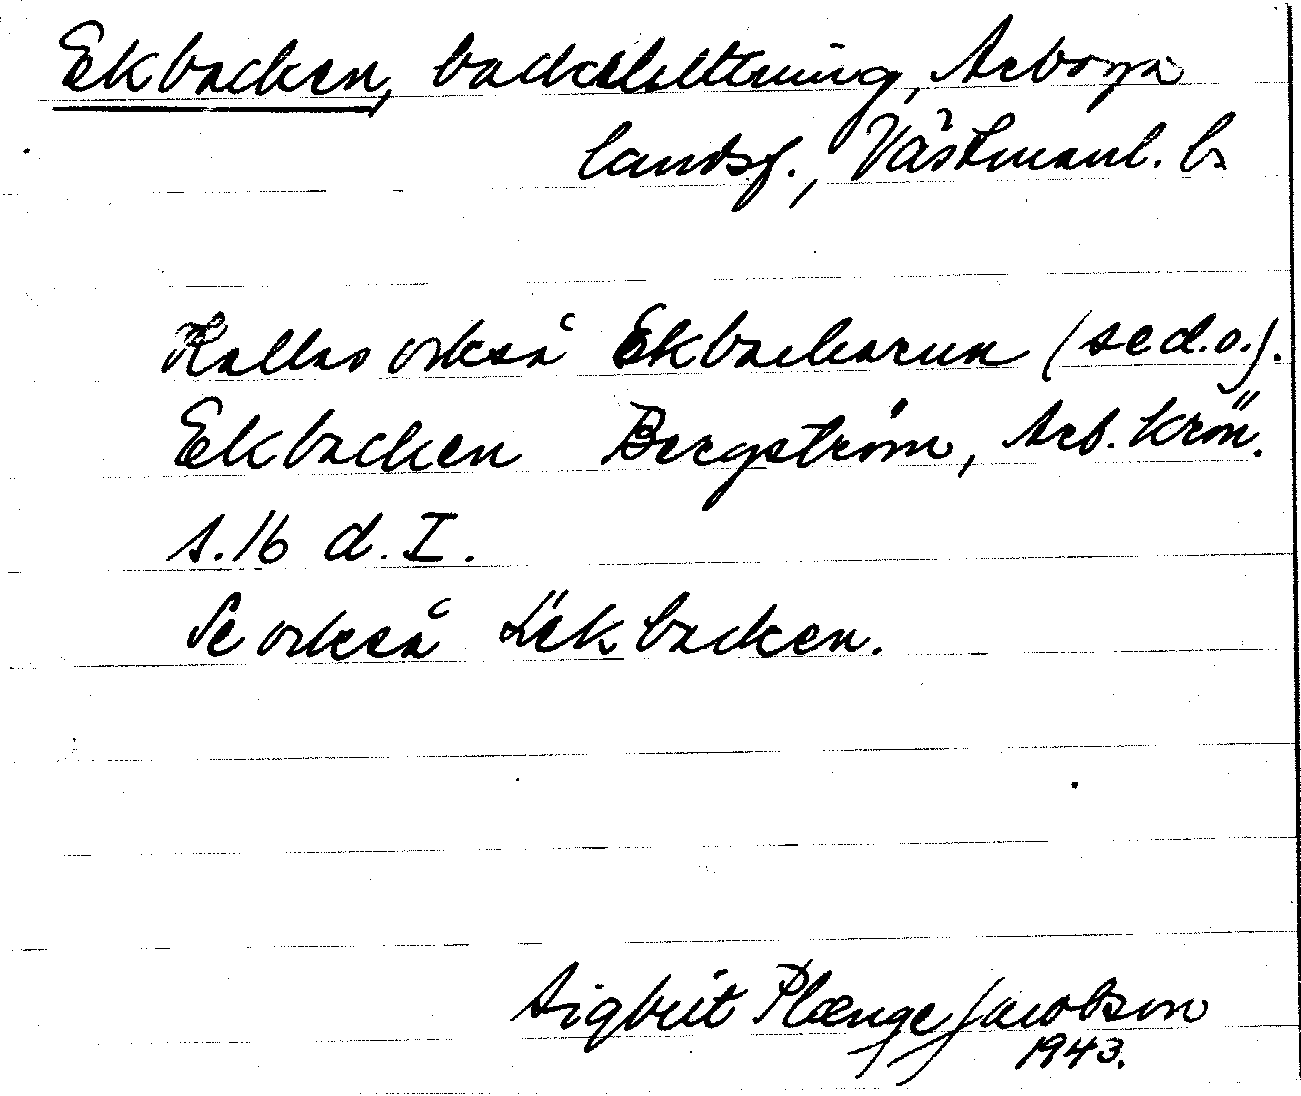 Ekbacken, backsluttning, Arboga
landsf., Västmanl. l.
Kallas också Ekbackarna (se d.o.).
Ekbacken Bergström, Arb. krön.
s. 16 d. I.
Se också Lekbacken.
Sigbrit Plænge Jacobson
1943.